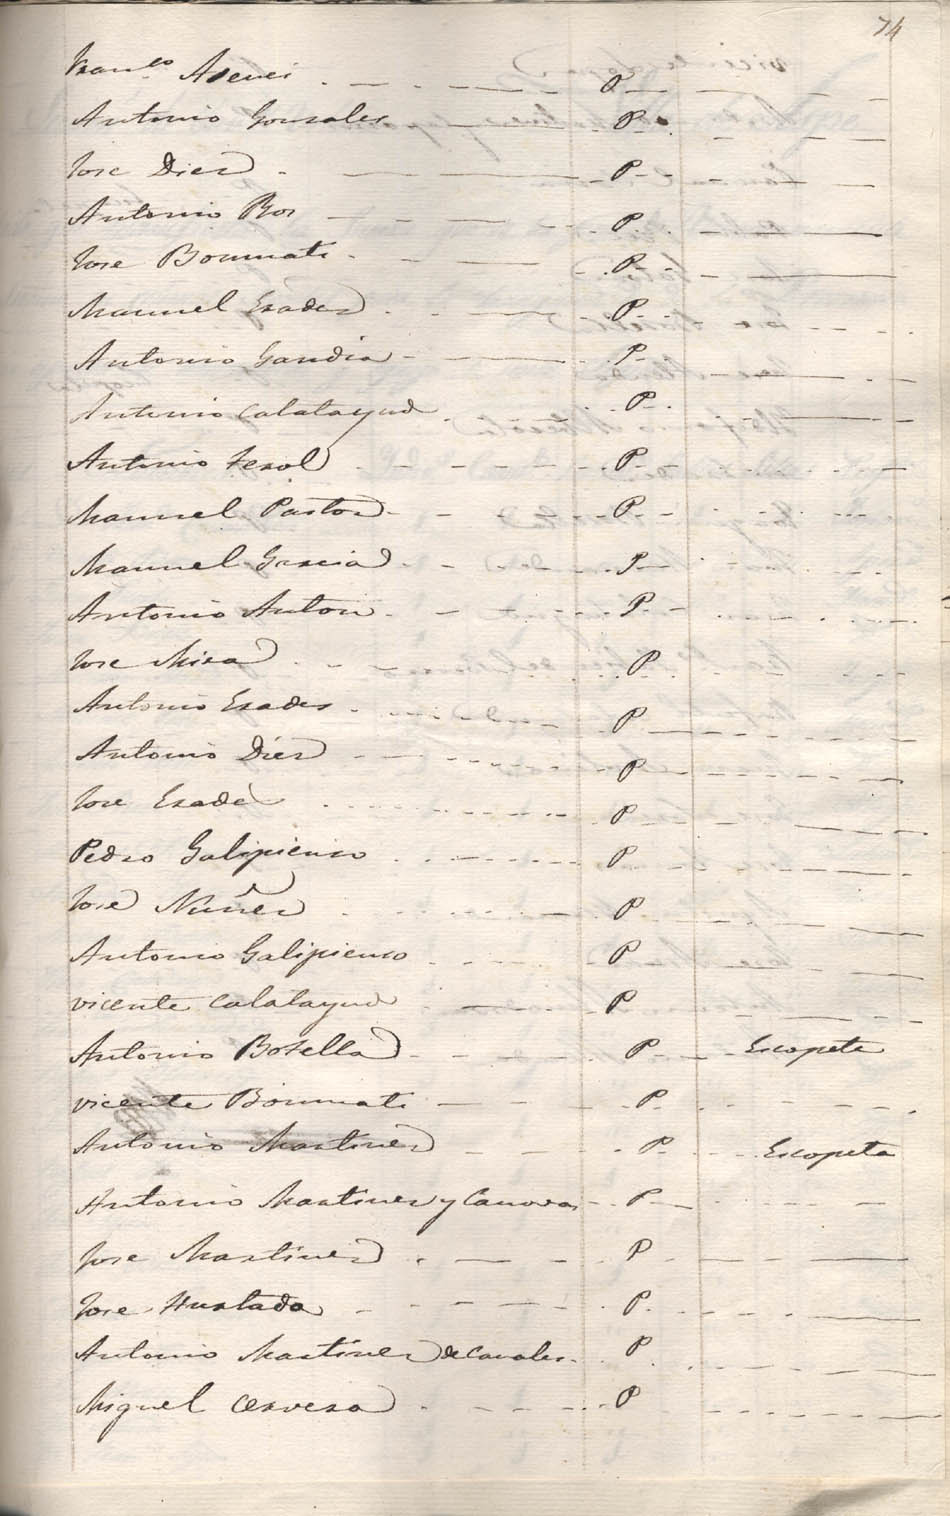 74
Fran.co Asenci P
Antonio Gonzales P
Jose Diez P
Antonio Bos P
Jose Bonmati P
Manuel Erades P
Antonio Gandia P
Antonio Calatayud P
Antonio Terol P
Manuel Pastor P
Manuel Gracia P
Antonio Anton P
Jose Mira P
Antonio Erades P
Antonio Diez P
Jose Erade P
Pedro Galipienso P
Jose Nuñez P
Antonio Galipienso P
vicente Calatayud P
Antonio Botella P Escopeta
vicente Bonmati P
Antonio Martinez P Escopeta
Antonio Martinez y Canovas P
Jose Martinez P
Jose Hurtado P
Antonio Martinez de Canales P
Miguel Cervera P